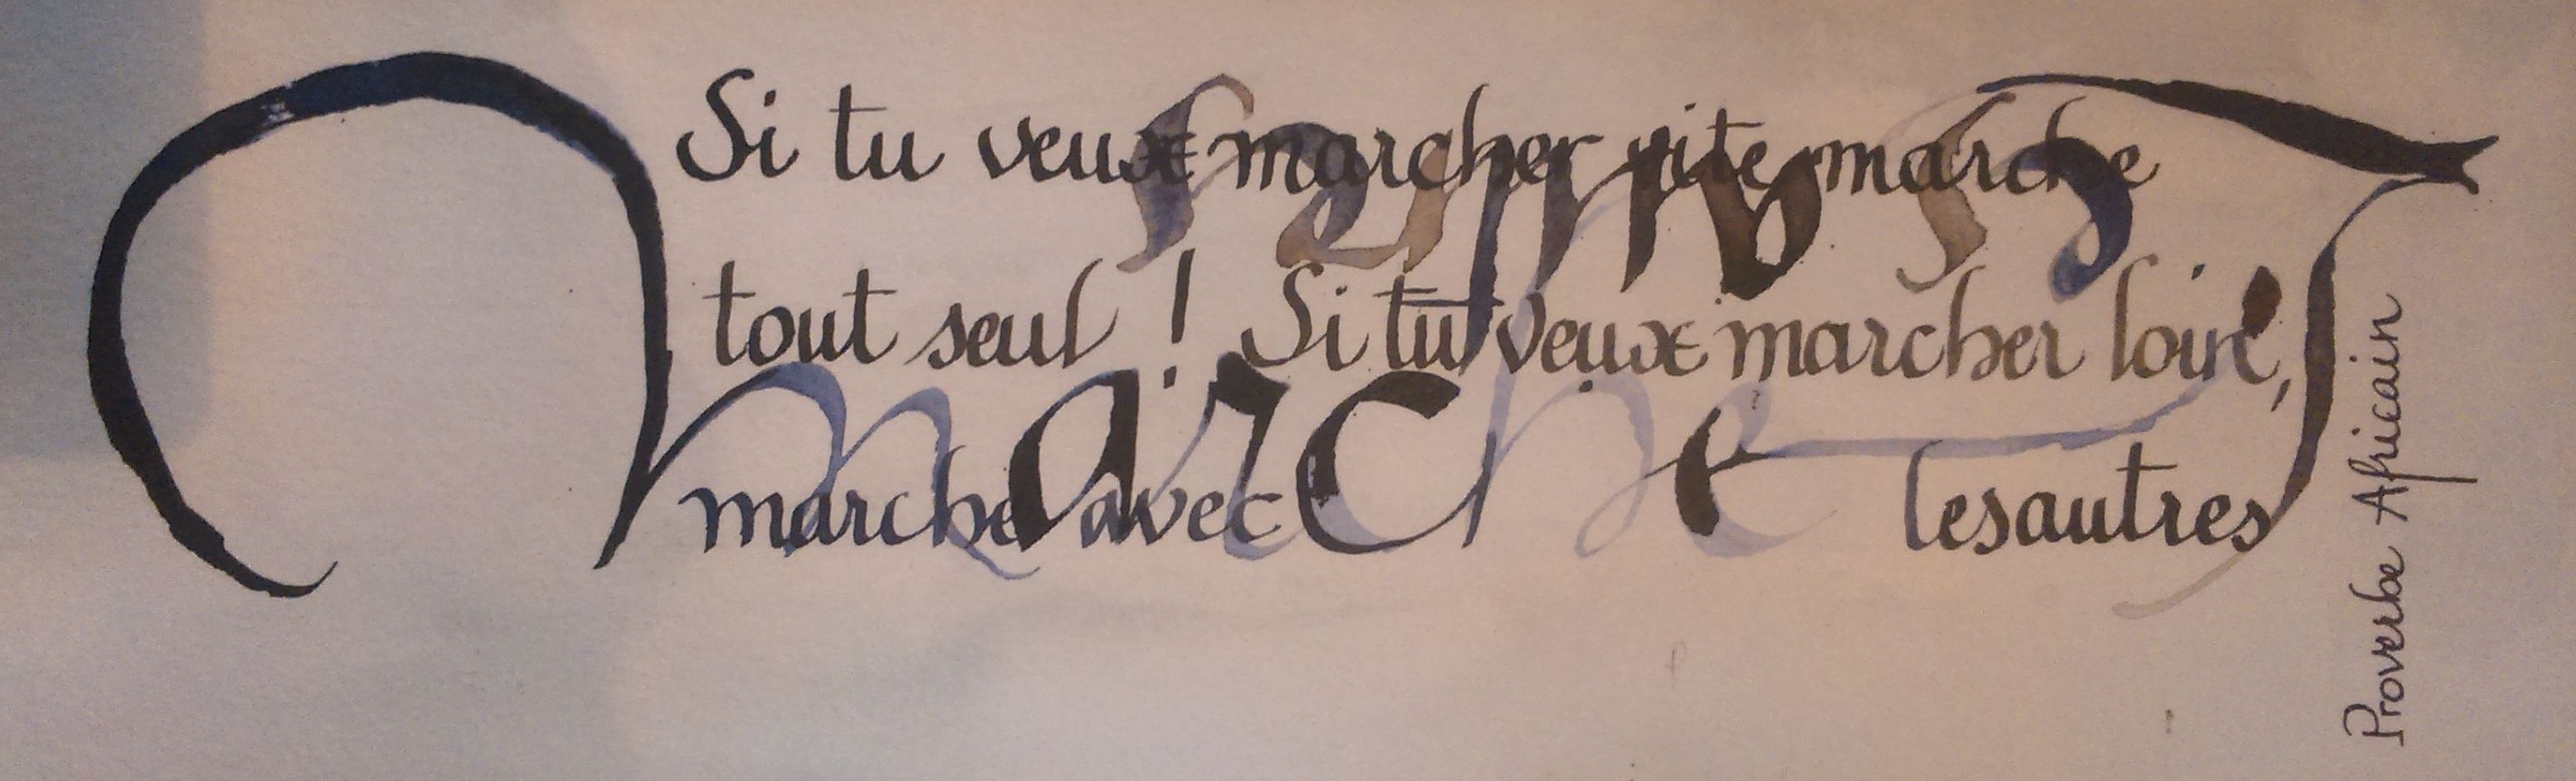 Si tu veux marcher vite marche
tout seul ! Si tu veux marcher loin,
marche
marche avec les autres
Proverbe Africain